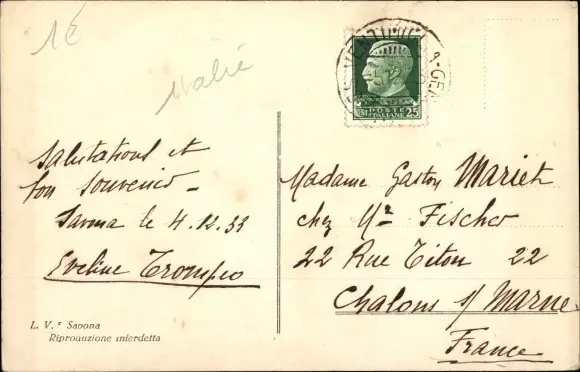 1€
Italie
VENTIMIGLIA-GENOVA
POSTE
ITALIANE
CENT 25
Salutations et
bon souvenir -
Savona le 4.12.33
Eveline Trompeo
L. V.ᵉ Savona
Riproduzione interdetta
Madame Gaston Mariet
chez Mr Fischer
22 Rue Titon 22
Chalons s/ Marne
France